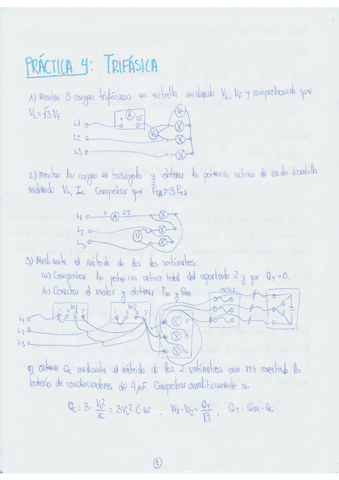 PRÁCTICA 4: TRIFÁSICA
1) Montar 3 cargas trifásicas en estrella midiendo VL, VF y comprobando que
VL=√3 VF
A
L1
L2
L3
2) Montar las cargas en triángulo y obtener la potencia activa de cada bombilla
midiendo VL, IL. Comprobar que
L1
A
L2
V
L3
3) Mediante el método de los dos vatímetros:
(a) Comprobar la potencia activa total del apartado 2 y que QT=0.
(b) Conectar el motor y obtener PM y QM
MOTOR
W1
W2
L1
L2
L3
4) Obtener QC mediante el método de los 2 vatímetros una vez conectada la
batería de condensadores de 4μF. Comprobar analíticamente si:
QC = 3 · VL²/XC = 3VL² C W ; WA-WB = QT/√3 , QT = QM-QC